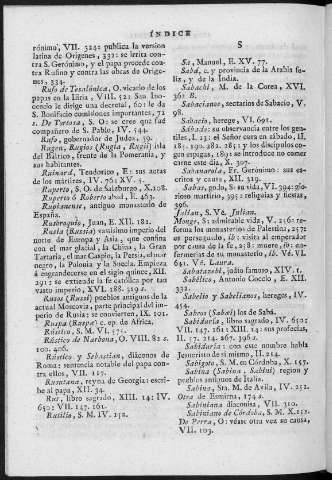 ÍNDICE
rónimo, VII. 324: publica la version
latina de Orígenes, 332: se irrita contra
S. Gerónimo, y el papa procede contra
Rufino y contra las obras de Orígenes,
334.
Rufo de Tesalónica, O. vicario de los
papas en la Iliria, VIII. 52: San Inocencio
le dirige una decretal, 60: le da
S. Bonifacio comisiones importantes, 72
R. De Tortosa, S. O: se cree que fué
compañero de S. Pablo, IV. 544.
Rufo, gobernador de Judea, 59.
Rugen, Rugios (Rugia, Rugii) isla
del Báltico, frente de la Pomerania, y
sus habitantes.
Ruinard, Teodorico, E: sus actas
de los mártires, IV. 761 XV. 5
Ruperto, S. O. de Salzburgo, X. 208.
Ruperto ó Roberto abad, E. 463.
Rupianense, antiguo monasterio de
España.
Rusbroquio, Juan, E. XII. 182.
Rusia (Russia) vastísimo imperio del
norte de Europa y Asia, que confina
con el mar glacial, la China, la Gran
Tartaria, el mar Caspio, la Persia, el mar
negro, la Polonia y la Suecia. Empieza
á engrandecerse en el siglo quince, XII.
291: se extiende la fe católica por tan
vasto imperio, XVI. 288. 319 s.
Rusos (Russi) pueblos antiguos de la
actual Moscovia, parte principal del imperio
de Rusia: se convierten, IX. 101.
Ruspa (Ruspa) c. op. de Africa.
Rústico, S. M. VI. 571.
Rústico de Narbona, O. VIII. 82 s.
100. 406.
Rústico, y Sebastian, diáconos de
Roma: sentencia notable del papa contra
ellos, VII. 117.
Rusutana, reyna de Georgia: escribe
al papa, XII. 34.
Rut, libro sagrado, XIII. 14: IV.
650: VII. 147. 161.
Rutilio, S. M. IV. 252.
S
Sa, Manuel, E. XV. 77.
Sabá, c. y provincia de la Arabia feliz,
y de la India.
Sabachi, M. de la Corea, XVI.
362 B.
Sabacianos, sectarios de Sabacio, V.
98.
Sabacio, herege, VI. 691.
Sábado: su observancia entre los gentiles,
I. 23: el Señor cura en sábado, II.
181. 190. 281. 285: y los discípulos cogen
espigas, 189: se introduce no comer
carne este dia, X. 307.
Sabanarola, Fr. Gerónimo: sus escritos
y causa, XII. 319.
Sabas, godo, S: su vida, VI. 594: glorioso
martirio, 395: reliquias y fiestas,
396.
Sabas, S. Vé. Julian.
Monge, S: admirable vida, V. 216: reforma
los monasterios de Palestina, 257:
es perseguido, ib: visita al emperador
por causa de la fe, 298: muere, 60: enfermerías
de su monasterio, ib. Vé. VI.
631. Vé. Laura.
Sabatazebi, judío famoso, XIV. 1.
Sabélico, Antonio Coccio, E. XII.
332.
Sabelio y Sabelianos, hereges, IV.
454.
Sabeos (Sabæi) los de Sabá.
Sabiduría, libro sagrado, IV. 650:
VII. 147. 161: XIII. 14: sus profecías,
II. 57. 214. 467. 396 s.
Sabiduría: con este nombre habla
Jesucristo de sí mismo, II. 254.
Sabigoto, S. M. en Córdoba, X. 157.
Sabina (Sabina, Sabini) region y
pueblos antiguos de Italia.
Sabina, Sta. M. de Avila, IV. 252.
Otra de Esmirna, 174 s.
Sabiniana diaconisa, VII. 310.
Sabiniano de Córdoba, S. M. X. 152.
De Perra, O: véase otra vez su causa,
VII. 103.